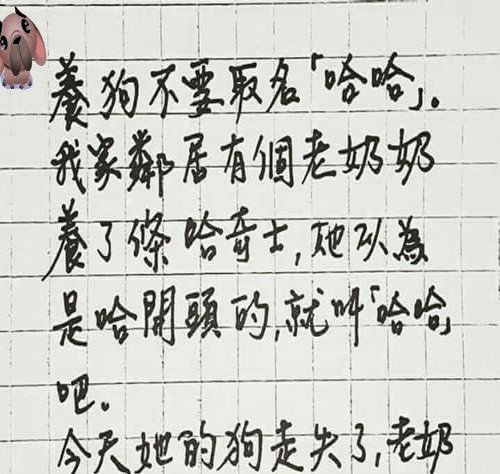 養狗不要取名「哈哈」。
我家鄰居有個老奶奶
養了條哈奇士,她以為
是哈開頭的,就叫「哈哈」
吧。
今天她的狗走失了,老奶